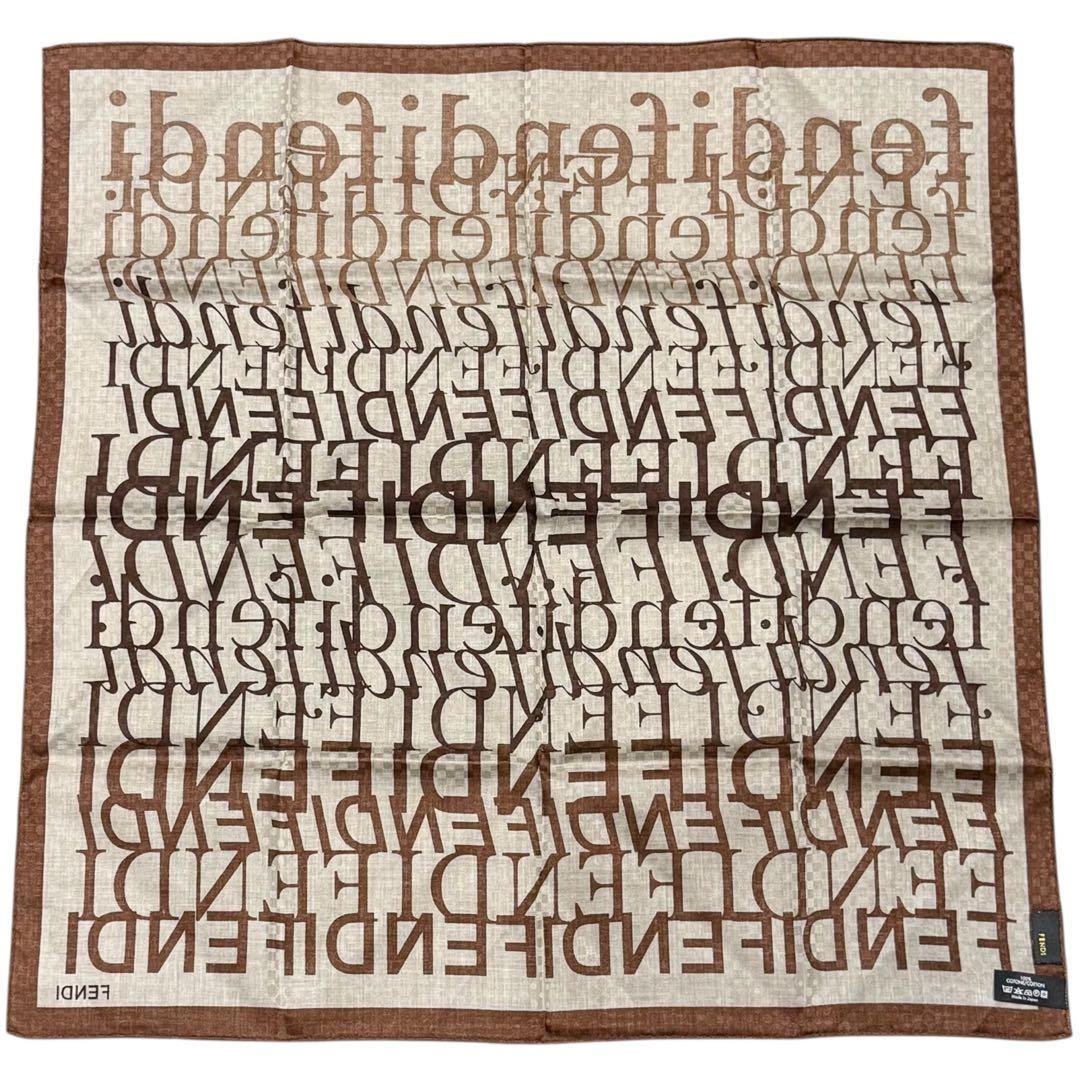 fendifendifendi
FENDIFENDIFENDIFENDI
fendifendifendifendi
fendifendifendifendi
FENDIFENDIFENDIFENDI
FENDIFENDIFENDIFENDIFENDI
FENDIFENDIFENDI
FENDIFENDIFENDI
FENDIFENDIFENDI
fendifendifendifendi
fendifendifendifendi
FENDIFENDIFENDI
FENDIFENDIFENDI
FENDIFENDIFENDIFENDI
FENDIFENDIFENDI
FENDIFENDIFENDIFENDI
FENDI
FENDI
100%
COTONE/COTTON
Made in Japan